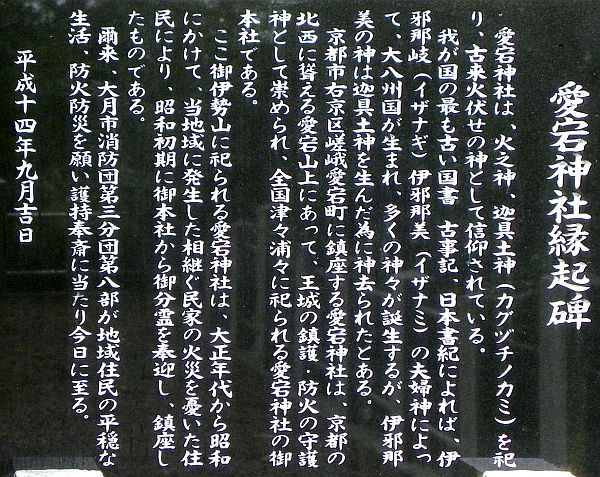 愛宕神社縁起碑
愛宕神社は、火之神、迦具土神（カグヅチノカミ）を祀
り、古来火伏せの神として信仰されている。
我が国の最も古い国書　古事記、日本書紀によれば、伊
邪那岐（イザナギ）伊邪那美（イザナミ）の夫婦神によっ
て、大八州国が生まれ、多くの神々が誕生するが、伊邪那
美の神は迦具土神を生んだ為に神去られたとある。
京都市右京区嵯峨愛宕町に鎮座する愛宕神社は、京都の
北西に聳える愛宕山上にあって、王城の鎮護・防火の守護
神として崇められ、全国津々浦々に祀られる愛宕神社の御
本社である。
ここ御伊勢山に祀られる愛宕神社は、大正年代から昭和
にかけて、当地域に発生した相継ぐ民家の火災を憂いた住
民により、昭和初期に御本社から御分霊を奉迎し、鎮座し
たものである。
爾来、大月市消防団第三分団第八部が地域住民の平穏な
生活、防火防災を願い護持奉斎に当たり今日に至る。
平成十四年九月吉日